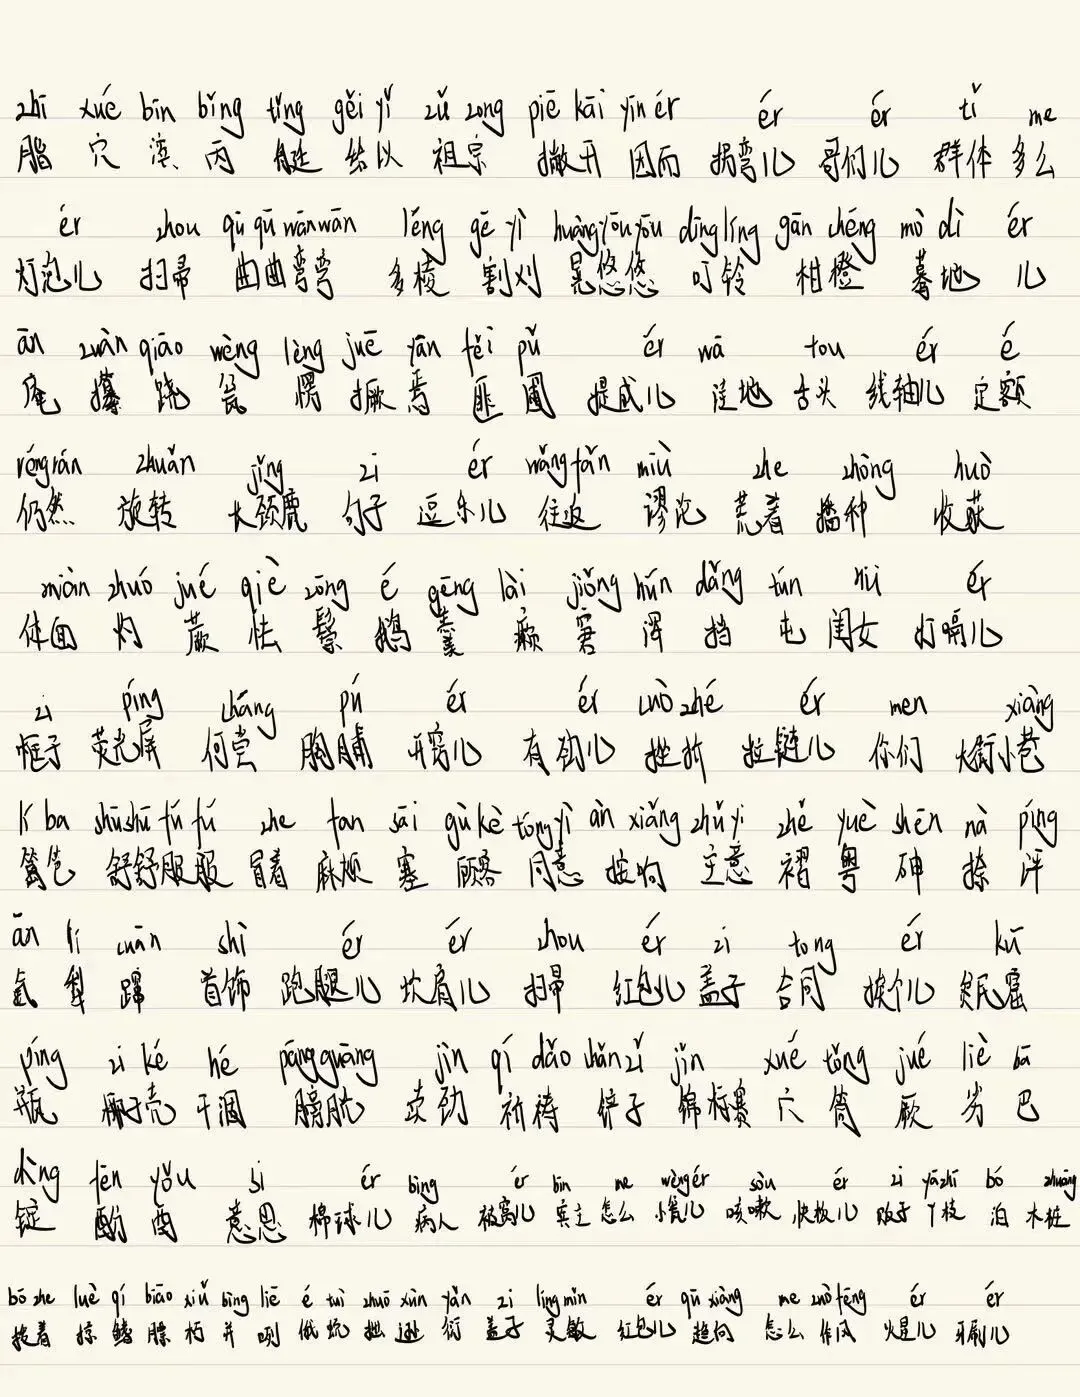 zhī xué bīn bǐng tǐng gěi yǐ zǔ zong piē kāi yīn ér ér ér tǐ me
脂 穴 滨 丙 艇 给以 祖宗 撇开 因而 拐弯儿 哥们儿 群体 多么
ér zhou qū qū wān wān léng gē yì huàng yōu yōu dīng líng gān chéng mò dì ér
灯泡儿 扫帚 曲曲弯弯 多棱 割刈 晃悠悠 叮铃 柑橙 蓦地 儿
ān zuàn qiāo wèng lèng juē yān fěi pǔ ér wā tou ér é
庵 攥 跷 瓮 愣 撅 焉 匪 圃 提成儿 洼地 舌头 线轴儿 定额
réng rán zhuǎn jǐng zi ér wǎng fǎn miù zhe zhòng huò
仍然 旋转 长颈鹿 句子 逗乐儿 往返 谬论 荒着 播种 收获
miàn zhuó jué qiè zōng é gēng lài jiǒng hún dǎng tún nǚ ér
体面 灼 蕨 怯 鬃 鹅 羹 癞 窘 浑 挡 屯 闺女 打嗝儿
zi píng cháng pú ér ér cuò zhé ér men xiàng
框子 荧光屏 何尝 胸脯 开窍儿 有劲儿 挫折 拉链儿 你们 大街小巷
lí ba shū shū fú fú zhe fan sāi gù kè tóng yì àn xiǎng zhǔ yi zhě yuè shēn nà píng
篱笆 舒舒服服 冒着 麻烦 塞 顾客 同意 按响 主意 褶 粤 砷 捺 坪
ān lí cuān shì ér ér zhou ér zi tong ér kū
氨 犁 蹿 首饰 跑腿儿 坎肩儿 扫帚 红包儿 盖子 合同 挨个儿 贫民窟
píng zi ké hé páng guāng jìn qí dǎo chǎn zi jǐn xué tǒng jué liè bā
瓶 椰子壳 干涸 膀胱 卖劲 祈祷 铲子 锦标赛 穴 筒 厥 劣 巴
dìng fēn yǒu si ér bìng ér bīn me wèng ér sòu ér zi yā zhī bó zhuāng
锭 酚 酉 意思 棉球儿 病人 被窝儿 宾主 怎么 小瓮儿 咳嗽 快板儿 贩子 丫枝 泊 木桩
bō zhe luè qí biāo xiǔ bìng liē é tuì zhuō xùn yǎn zi líng mǐn ér qū xiàng me zuò fēng ér ér
拨着 掠 鳍 膘 朽 并 咧 俄 蜕 拙 逊 衍 盖子 灵敏 红包儿 趋向 怎么 作风 火星儿 牙刷儿